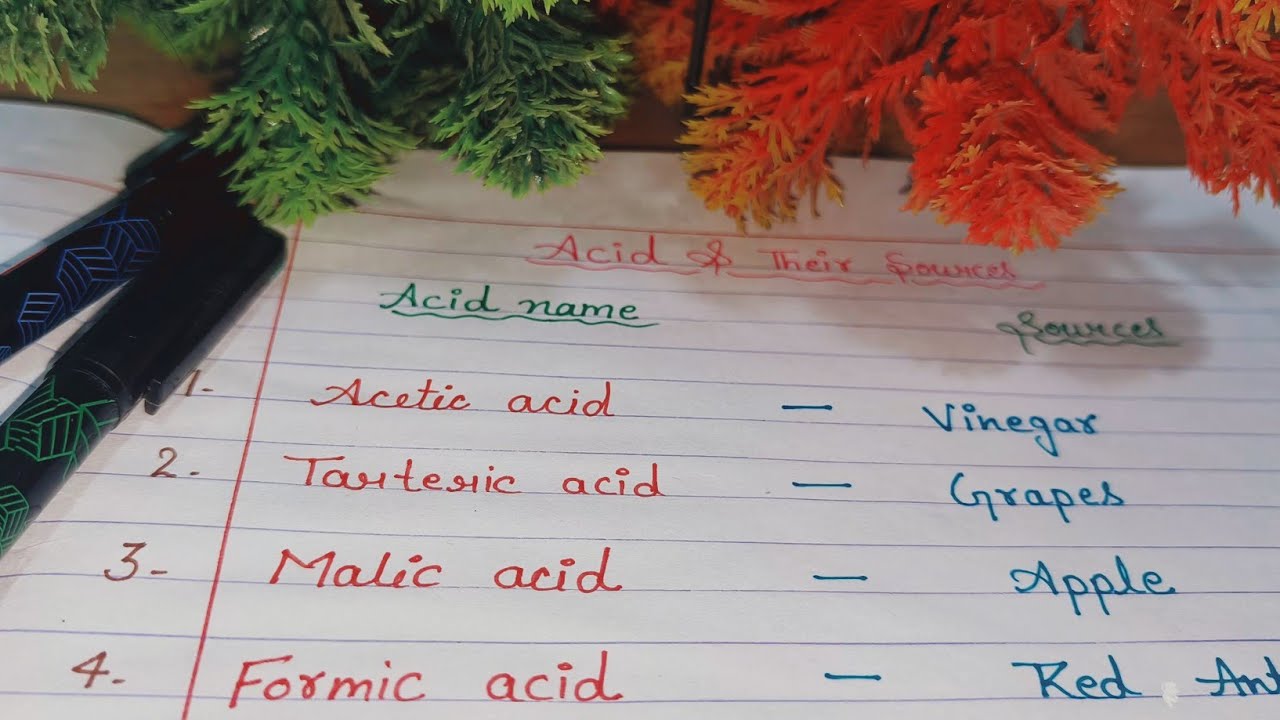 Acid & Their Sources
Acid name Sources
1- Acetic acid — Vinegar
2. Tarteric acid — Grapes
3- Malic acid — Apple
4. Formic acid — Red Ant